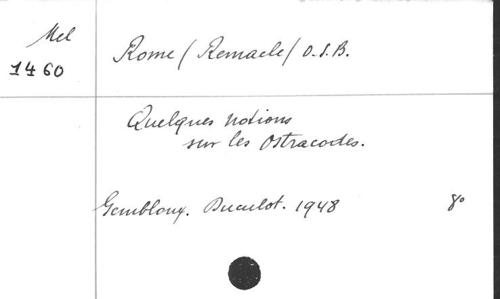 Mel
1460
Rome (Remacle) O.S.B.
Quelques notions
sur les Ostracodes.
Gembloux. Duculot. 1948 8°